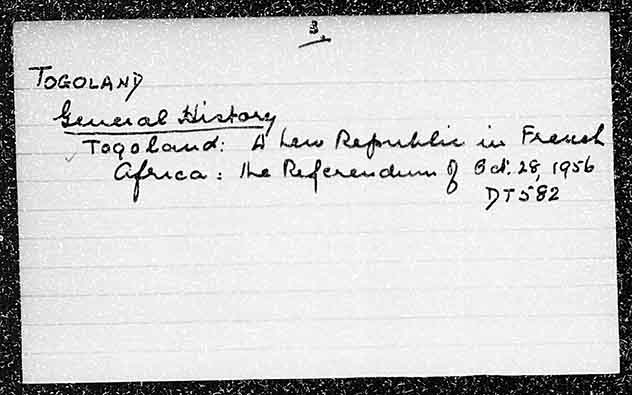 3.
TOGOLAND
General History
Togoland: A new Republic in French
Africa: the Referendum of Oct. 28, 1956
DT582